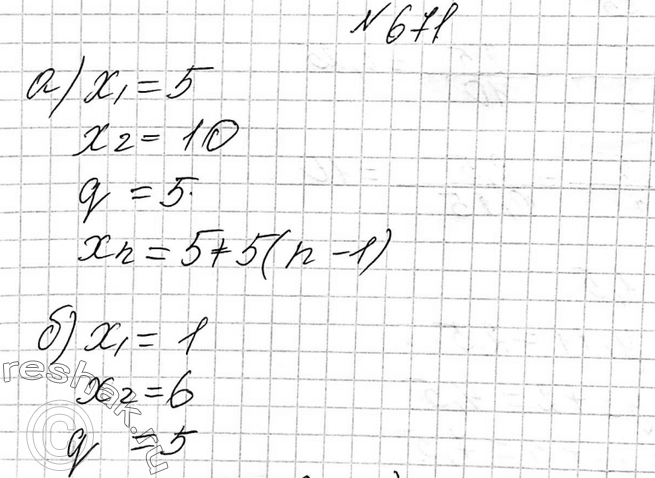 № 671
а) x₁ = 5
x₂ = 10
q = 5
xₙ = 5 + 5(n - 1)
б) x₁ = 1
x₂ = 6
q = 5
reshak.ru